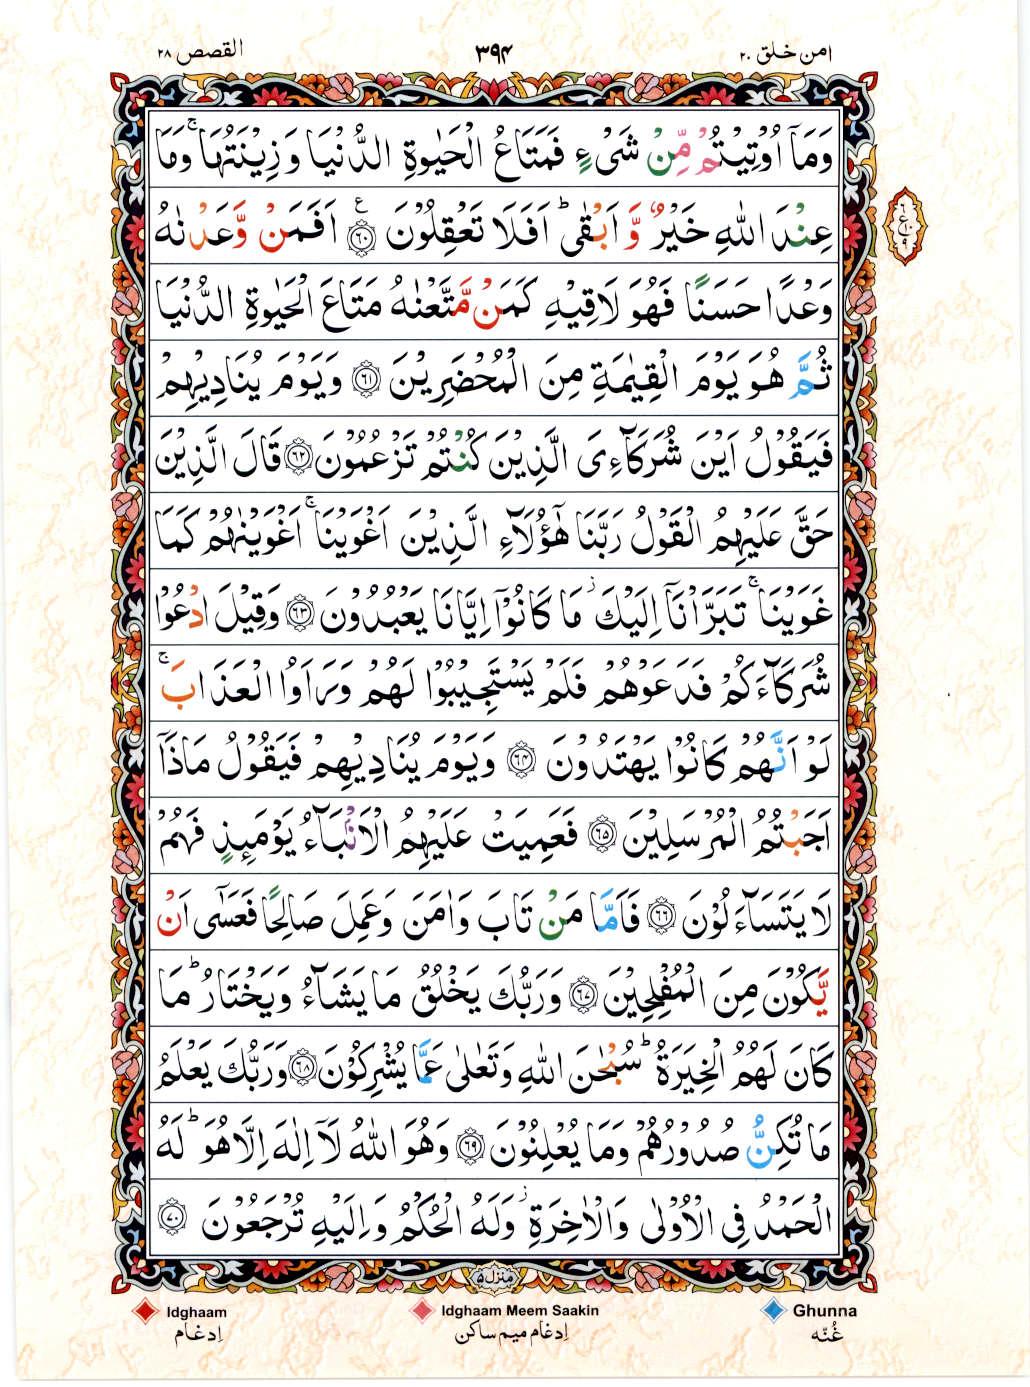 امن خلق ٢٠ ٣٩۴ القصص ٢٨
وَمَآ اُوْتِيْتُمْ مِّنْ شَىْءٍ فَمَتَاعُ الْحَيٰوةِ الدُّنْيَا وَ زِيْنَتُهَا ۚ وَمَا
عِنْدَ اللّٰهِ خَيْرٌ وَّ اَبْقٰى ؕ اَفَلَا تَعْقِلُوْنَ ﴿٦٠﴾ۧ اَفَمَنْ وَّعَدْنٰهُ
وَعْدًا حَسَنًا فَهُوَ لَاقِيْهِ كَمَنْ مَّتَّعْنٰهُ مَتَاعَ الْحَيٰوةِ الدُّنْيَا
ثُمَّ هُوَ يَوْمَ الْقِيٰمَةِ مِنَ الْمُحْضَرِيْنَ ﴿٦١﴾ وَيَوْمَ يُنَادِيْهِمْ
فَيَقُوْلُ اَيْنَ شُرَكَآءِىَ الَّذِيْنَ كُنْتُمْ تَزْعُمُوْنَ ﴿٦٢﴾ قَالَ الَّذِيْنَ
حَقَّ عَلَيْهِمُ الْقَوْلُ رَبَّنَا هٰٓؤُلَآءِ الَّذِيْنَ اَغْوَيْنَا ۚ اَغْوَيْنٰهُمْ كَمَا
غَوَيْنَا ۚ تَبَرَّاْنَآ اِلَيْكَ ؗ مَا كَانُوْٓا اِيَّانَا يَعْبُدُوْنَ ﴿٦٣﴾ وَقِيْلَ ادْعُوْا
شُرَكَآءَكُمْ فَدَعَوْهُمْ فَلَمْ يَسْتَجِيْبُوْا لَهُمْ وَرَاَوُا الْعَذَابَ ۚ
لَوْ اَنَّهُمْ كَانُوْا يَهْتَدُوْنَ ﴿٦۴﴾ وَيَوْمَ يُنَادِيْهِمْ فَيَقُوْلُ مَاذَآ
اَجَبْتُمُ الْمُرْسَلِيْنَ ﴿٦٥﴾ فَعَمِيَتْ عَلَيْهِمُ الْاَنْۢبَآءُ يَوْمَئِذٍ فَهُمْ
لَا يَتَسَآءَلُوْنَ ﴿٦٦﴾ فَاَمَّا مَنْ تَابَ وَاٰمَنَ وَعَمِلَ صَالِحًا فَعَسٰٓى اَنْ
يَّكُوْنَ مِنَ الْمُفْلِحِيْنَ ﴿٦٧﴾ وَرَبُّكَ يَخْلُقُ مَا يَشَآءُ وَيَخْتَارُ ؕ مَا
كَانَ لَهُمُ الْخِيَرَةُ ؕ سُبْحٰنَ اللّٰهِ وَتَعٰلٰى عَمَّا يُشْرِكُوْنَ ﴿٦٨﴾ وَرَبُّكَ يَعْلَمُ
مَا تُكِنُّ صُدُوْرُهُمْ وَمَا يُعْلِنُوْنَ ﴿٦٩﴾ وَهُوَ اللّٰهُ لَآ اِلٰهَ اِلَّا هُوَ ؕ لَهُ
الْحَمْدُ فِى الْاُوْلٰى وَالْاٰخِرَةِ ؗ وَلَهُ الْحُكْمُ وَاِلَيْهِ تُرْجَعُوْنَ ﴿٧٠﴾
منزل ۵
Idghaam Idghaam Meem Saakin Ghunna
اِدغام اِدغام میم ساکن غُنّه